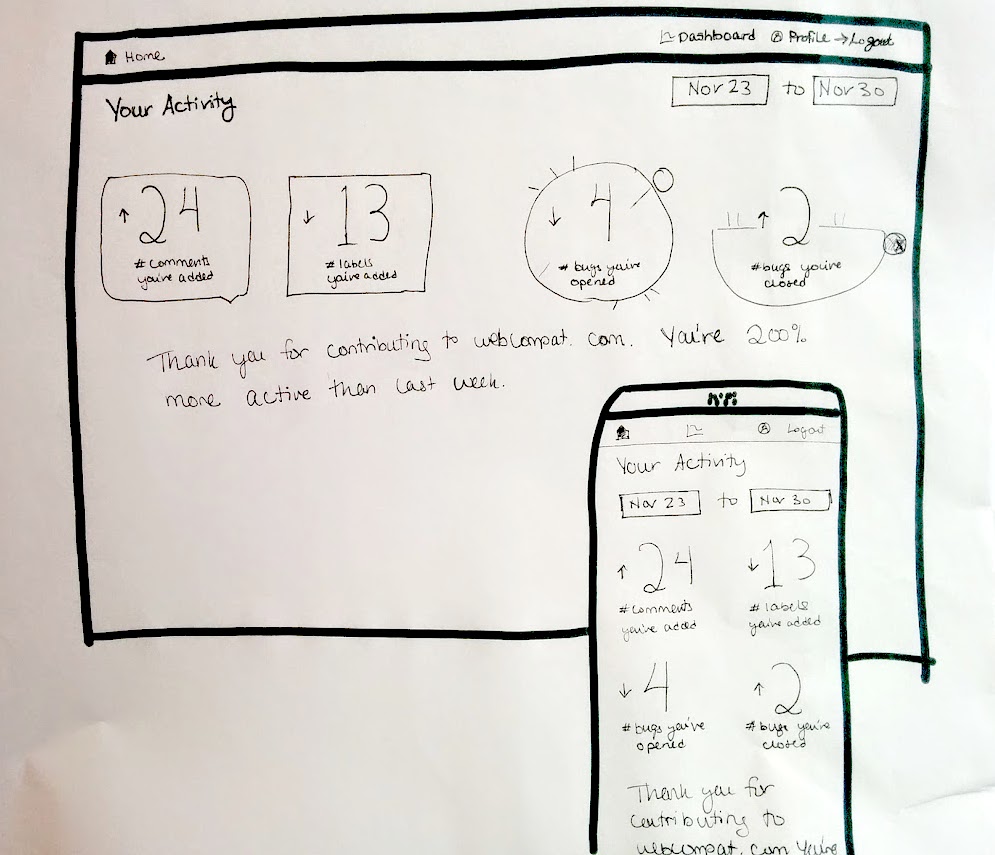 Home
Dashboard Profile Logout
Your Activity
Nov 23 to Nov 30
↑ 24
# comments
you've added
↓ 13
# labels
you've added
↓ 4
# bugs you've
opened
↑ 2
# bugs you've
closed
Thank you for contributing to webcompat.com. You're 200%
more active than last week.
Logout
Your Activity
Nov 23 to Nov 30
↑ 24
# comments
you've added
↓ 13
# labels
you've added
↓ 4
# bugs you've
opened
↑ 2
# bugs you've
closed
Thank you for
contributing to
webcompat.com You're